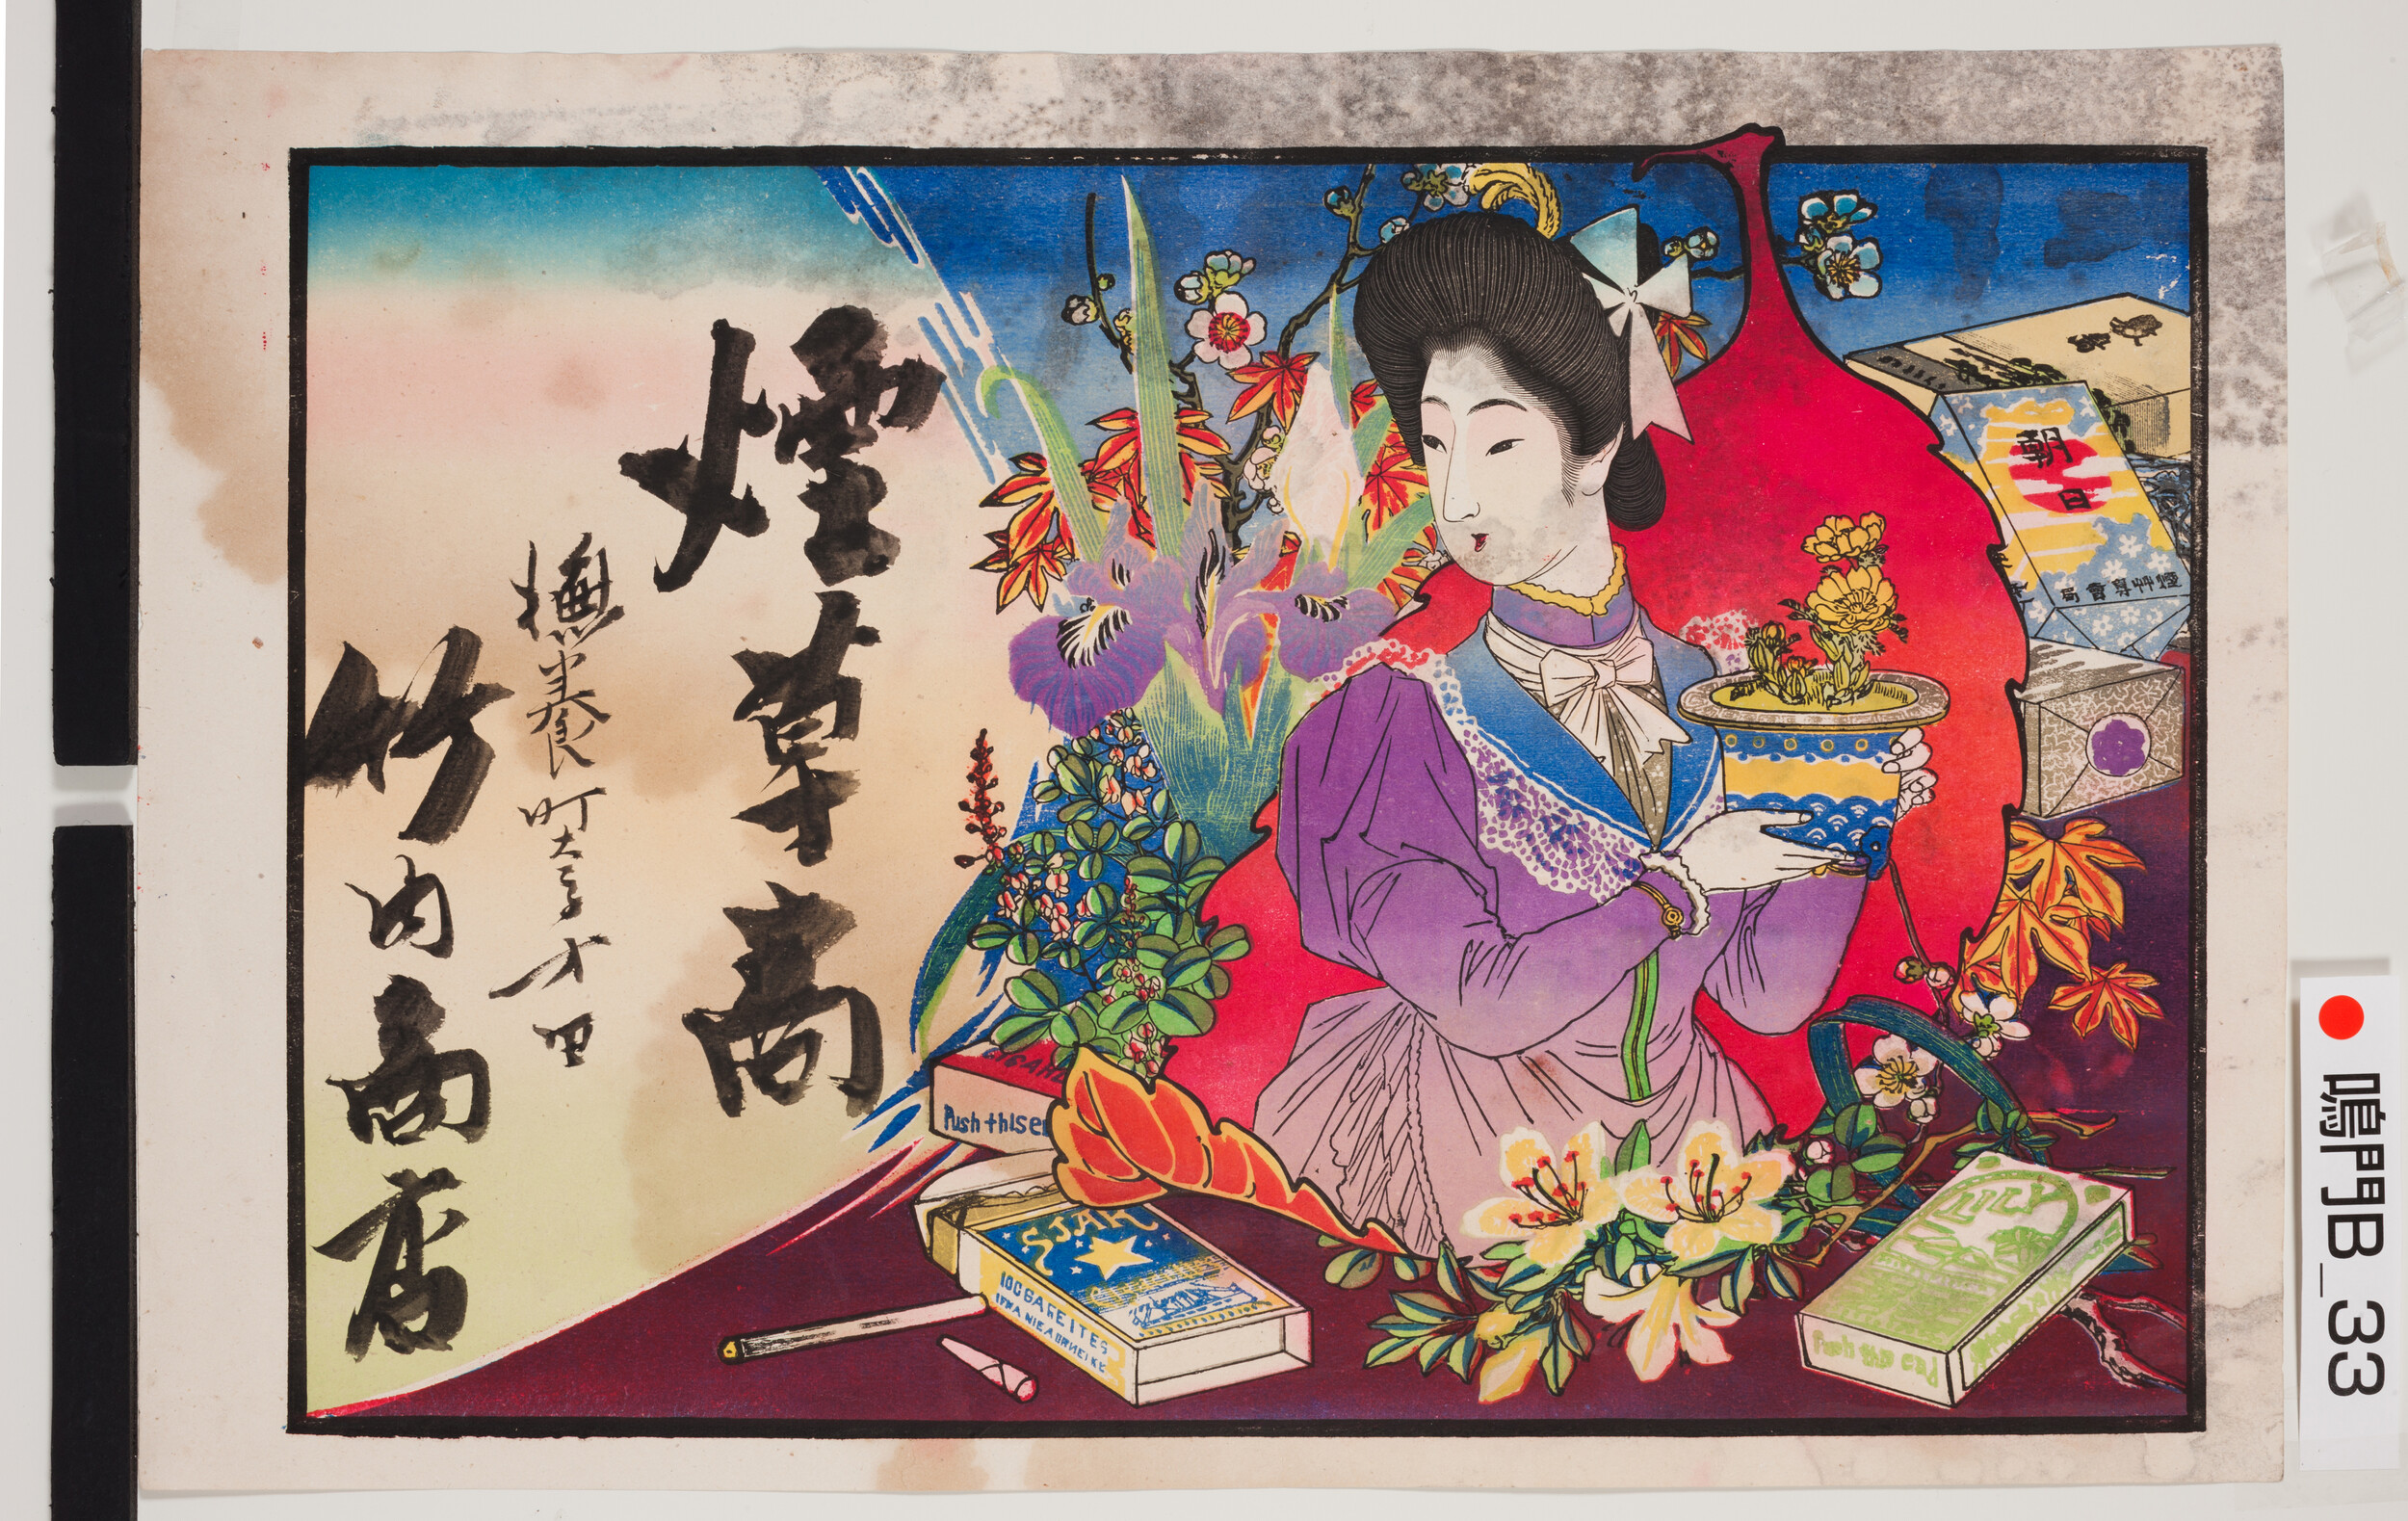 煙草商
撫養町大字才田
竹内商店
朝日
煙艸専賣局
CIGARE
Push this en
STAR
CIGARETTES
10CGAREITES
LILY
Push this end
鳴門B_33